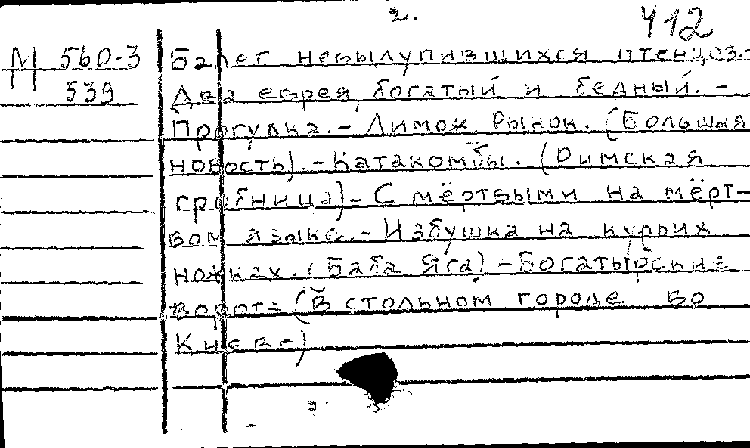 2.
412
М 560-3
539
Балет невылупившихся птенцов.-
Два еврея, богатый и бедный. -
Прогулка. - Лимож Рынок. (Большая
новость). - Катакомбы. (Римская
гробница) - С мёртвыми на мёрт-
вом языке. - Избушка на курьих
ножках. (Баба Яга) - Богатырские
ворота (В стольном городе во
Киеве)